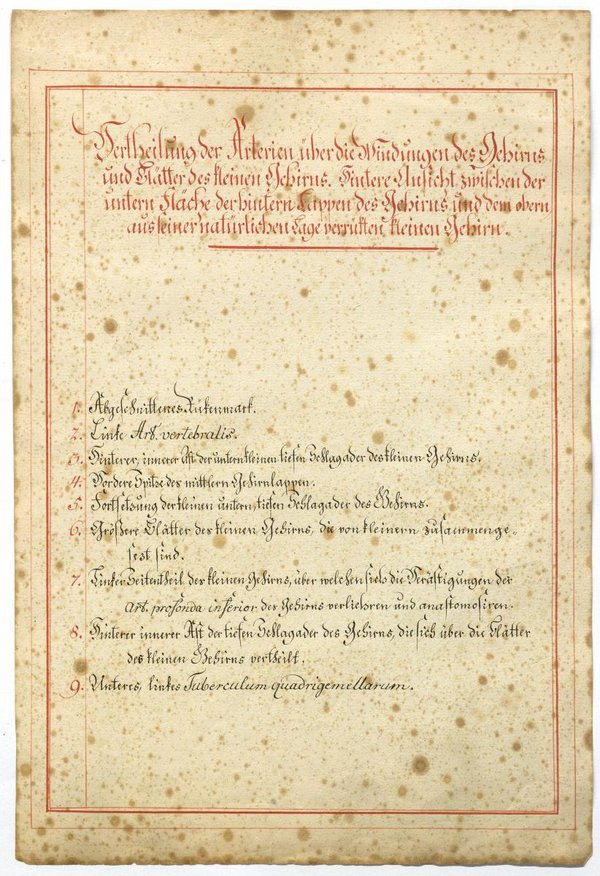 Vertheilung der Arterien über die Windungen des Gehirns
und Blätter des kleinen Gehirns. Hintere Ansicht zwischen der
untern Fläche der hintern Lappen des Gehirns und dem obern,
aus seiner natürlichen Lage verrükten, kleinen Gehirn.
1. Abgeschnittenes Rükenmark.
2. Linke Art. vertebralis.
3. Hinterer, innerer Ast der untern kleinen tiefen Schlagader des kleinen Gehirns.
4. Vordere Spitze des mittlern Gehirnlappen.
5. Fortsetzung der kleinen untern, tiefen Schlagader des Gehirns.
6. Größere Blätter des kleinen Gehirns, die von kleinern zusammenge-
sezt sind.
7. Linker Seitentheil des kleinen Gehirns, über welchen sich die Verästigungen der
Art. profonda inferior des Gehirns verliehren und anastomosiren.
8. Hinterer innerer Ast der tiefen Schlagader des Gehirns, die sich über die Blätter
des kleinen Gehirns vertheilt.
9. Unteres, linkes Tuberculum quadrigemellarum.